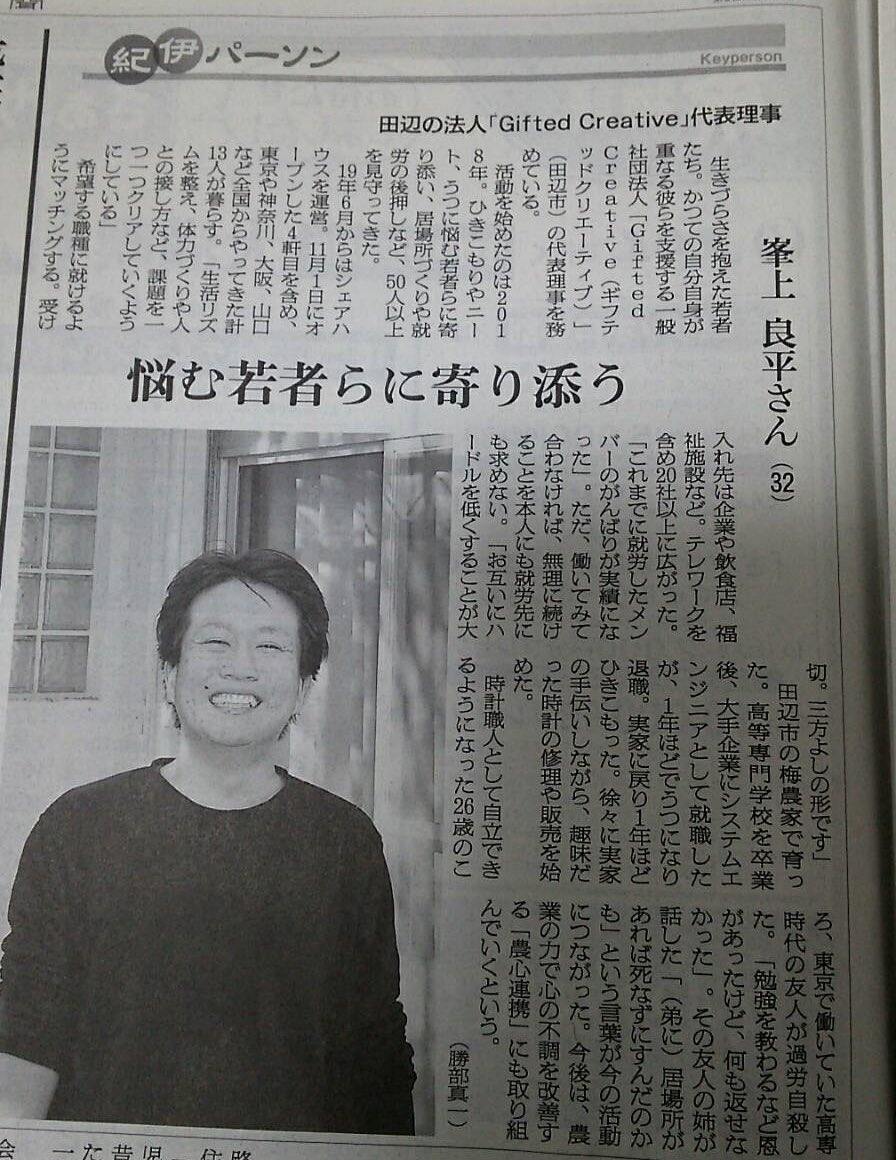 紀伊パーソン
Keyperson
田辺の法人「Gifted Creative」代表理事
峯上 良平さん(32)
悩む若者らに寄り添う
生きづらさを抱えた若者
たち。かつての自分自身が
重なる彼らを支援する一般
社団法人「Gifted
Creative(ギフテ
ッドクリエーティブ)」
(田辺市)の代表理事を務
めている。
活動を始めたのは201
8年。ひきこもりやニー
ト、うつに悩む若者らに寄
り添い、居場所づくりや就
労の後押しなど、50人以上
を見守ってきた。
19年6月からはシェアハ
ウスを運営。11月1日にオ
ープンした4軒目を含め、
東京や神奈川、大阪、山口
など全国からやってきた計
13人が暮らす。「生活リズ
ムを整え、体力づくりや人
との接し方など、課題を一
つ一つクリアしていくよう
にしている」
希望する職種に就けるよ
うにマッチングする。受け
入れ先は企業や飲食店、福
祉施設など。テレワークを
含め20社以上に広がった。
「これまでに就労したメン
バーのがんばりが実績にな
った」。ただ、働いてみて
合わなければ、無理に続け
ることを本人にも就労先に
も求めない。「お互いにハ
ードルを低くすることが大
切。三方よしの形です」
田辺市の梅農家で育っ
た。高等専門学校を卒業
後、大手企業にシステムエ
ンジニアとして就職した
が、1年ほどでうつになり
退職。実家に戻り1年ほど
ひきこもった。徐々に実家
の手伝いしながら、趣味だ
った時計の修理や販売を始
めた。
時計職人として自立でき
るようになった26歳のこ
ろ、東京で働いていた高専
時代の友人が過労自殺し
た。「勉強を教わるなど恩
があったけど、何も返せな
かった」。その友人の姉が
話した「(弟に)居場所が
あれば死なずにすんだのか
も」という言葉が今の活動
につながった。今後は、農
業の力で心の不調を改善す
る「農心連携」にも取り組
んでいくという。
(勝部真一)